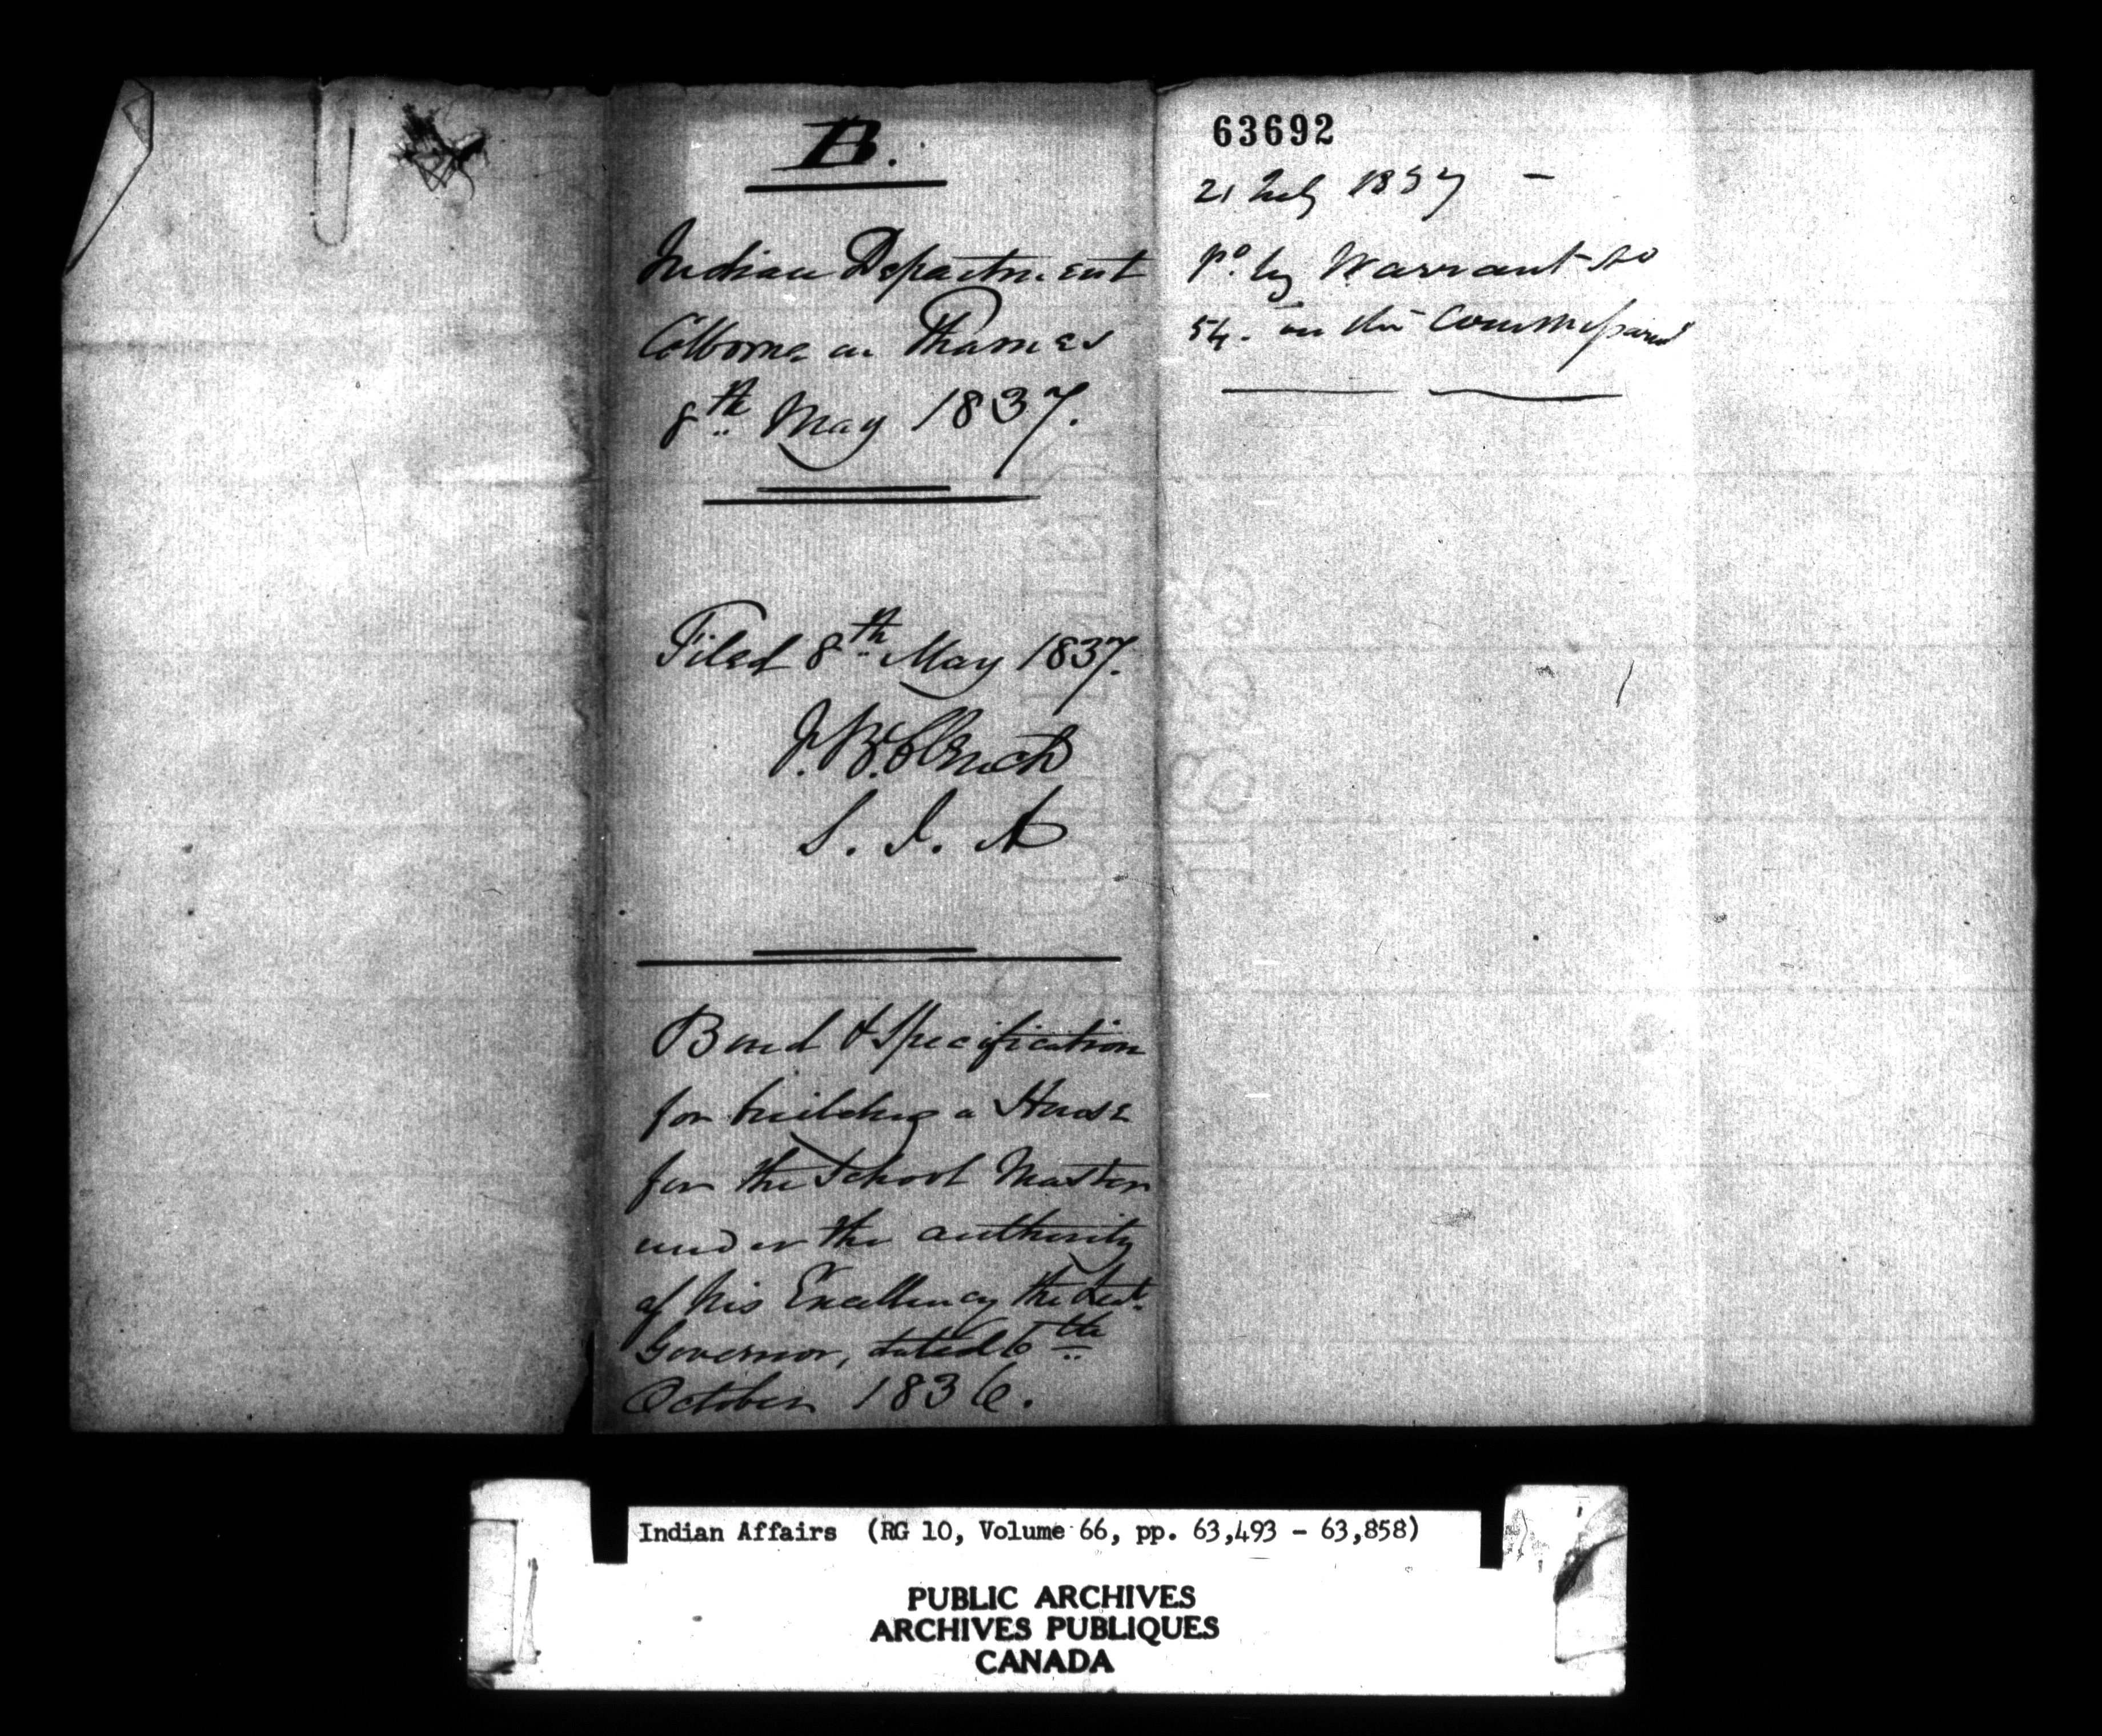 B.
Indian Department
Colborne on Thames
8th May 1837.
Filed 8th May 1837.
J. B. Clench
S. I. A
Bond & Specification
for building a House
for the School Master
under the authority
of his Excellency the Lieut.
Governor, dated 6th
October 1836.
63692
21 July 1837 –
pd. by Warrant No
54. on the
Indian Affairs (RG 10, Volume 66, pp. 63,493 - 63,858)
PUBLIC ARCHIVES
ARCHIVES PUBLIQUES
CANADA